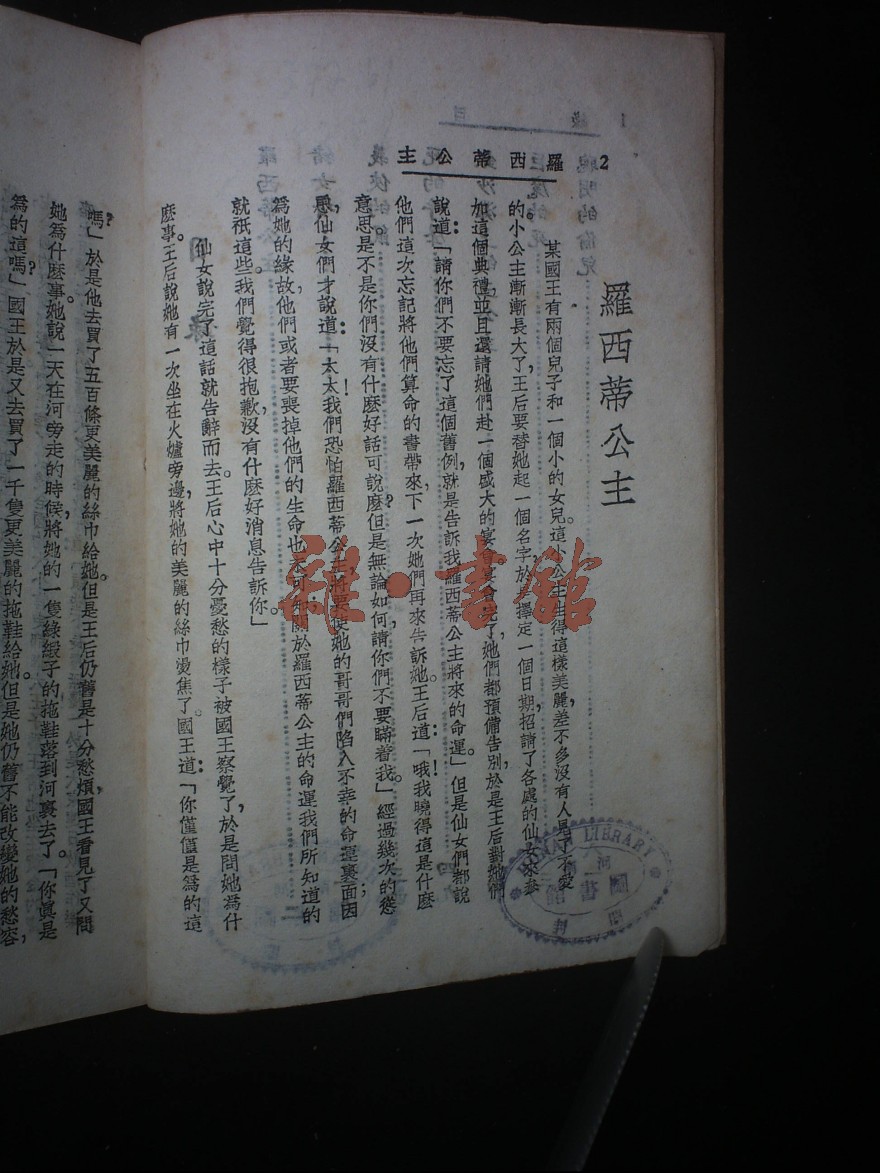 2 羅西蒂公主
羅西蒂公主
某國王有兩個兒子和一個小的女兒。這小公主生得這樣美麗,差不多沒有人見了不愛
的。小公主漸漸長大了,王后要替她起一個名字,於擇定一個日期,招請了各處的仙女來參
加這個典禮並且還請她們赴一個盛大的宴會。宴會完了,她們都預備告別,於是王后對她們
說道:「請你們不要忘了這個舊例,就是告訴我羅西蒂公主將來的命運。」但是仙女們都說
他們這次忘記將他們算命的書帶來,下一次她們再來告訴她。王后道:「哦!我曉得這是什麽
意思。是不是你們沒有什麽好話可說麽?但是無論如何,請你們不要瞞着我。」經過幾次的懲
恿,仙女們才說道:「太太!我們恐怕羅西蒂公主將要使她的哥哥們陷入不幸的命運裏面;因
為她的緣故,他們或者要喪掉他們的生命也未可知。關於羅西蒂公主的命運我們所知道的
就祇這些,我們覺得很抱歉,沒有什麽好消息告訴你。」
仙女說完了這話就告辭而去。王后心中十分憂愁的樣子被國王察覺了,於是問她為什
麽事。王后說她有一次坐在火爐旁邊將她的美麗的絲巾燙焦了。國王道:「你僅僅是為的這
嗎?」於是他去買了五百條更美麗的絲巾給她。但是王后仍舊是十分愁煩,國王看見了又問
她為什麽事。她說一天在河旁走的時候,將她的一隻綠緞子的拖鞋落到河裏去了。「你真是
為的這嗎?」國王於是又去買了一千隻更美麗的拖鞋給她。但是她仍舊不能改變她的愁容,
雜·書館
LIBRARY
圖
書